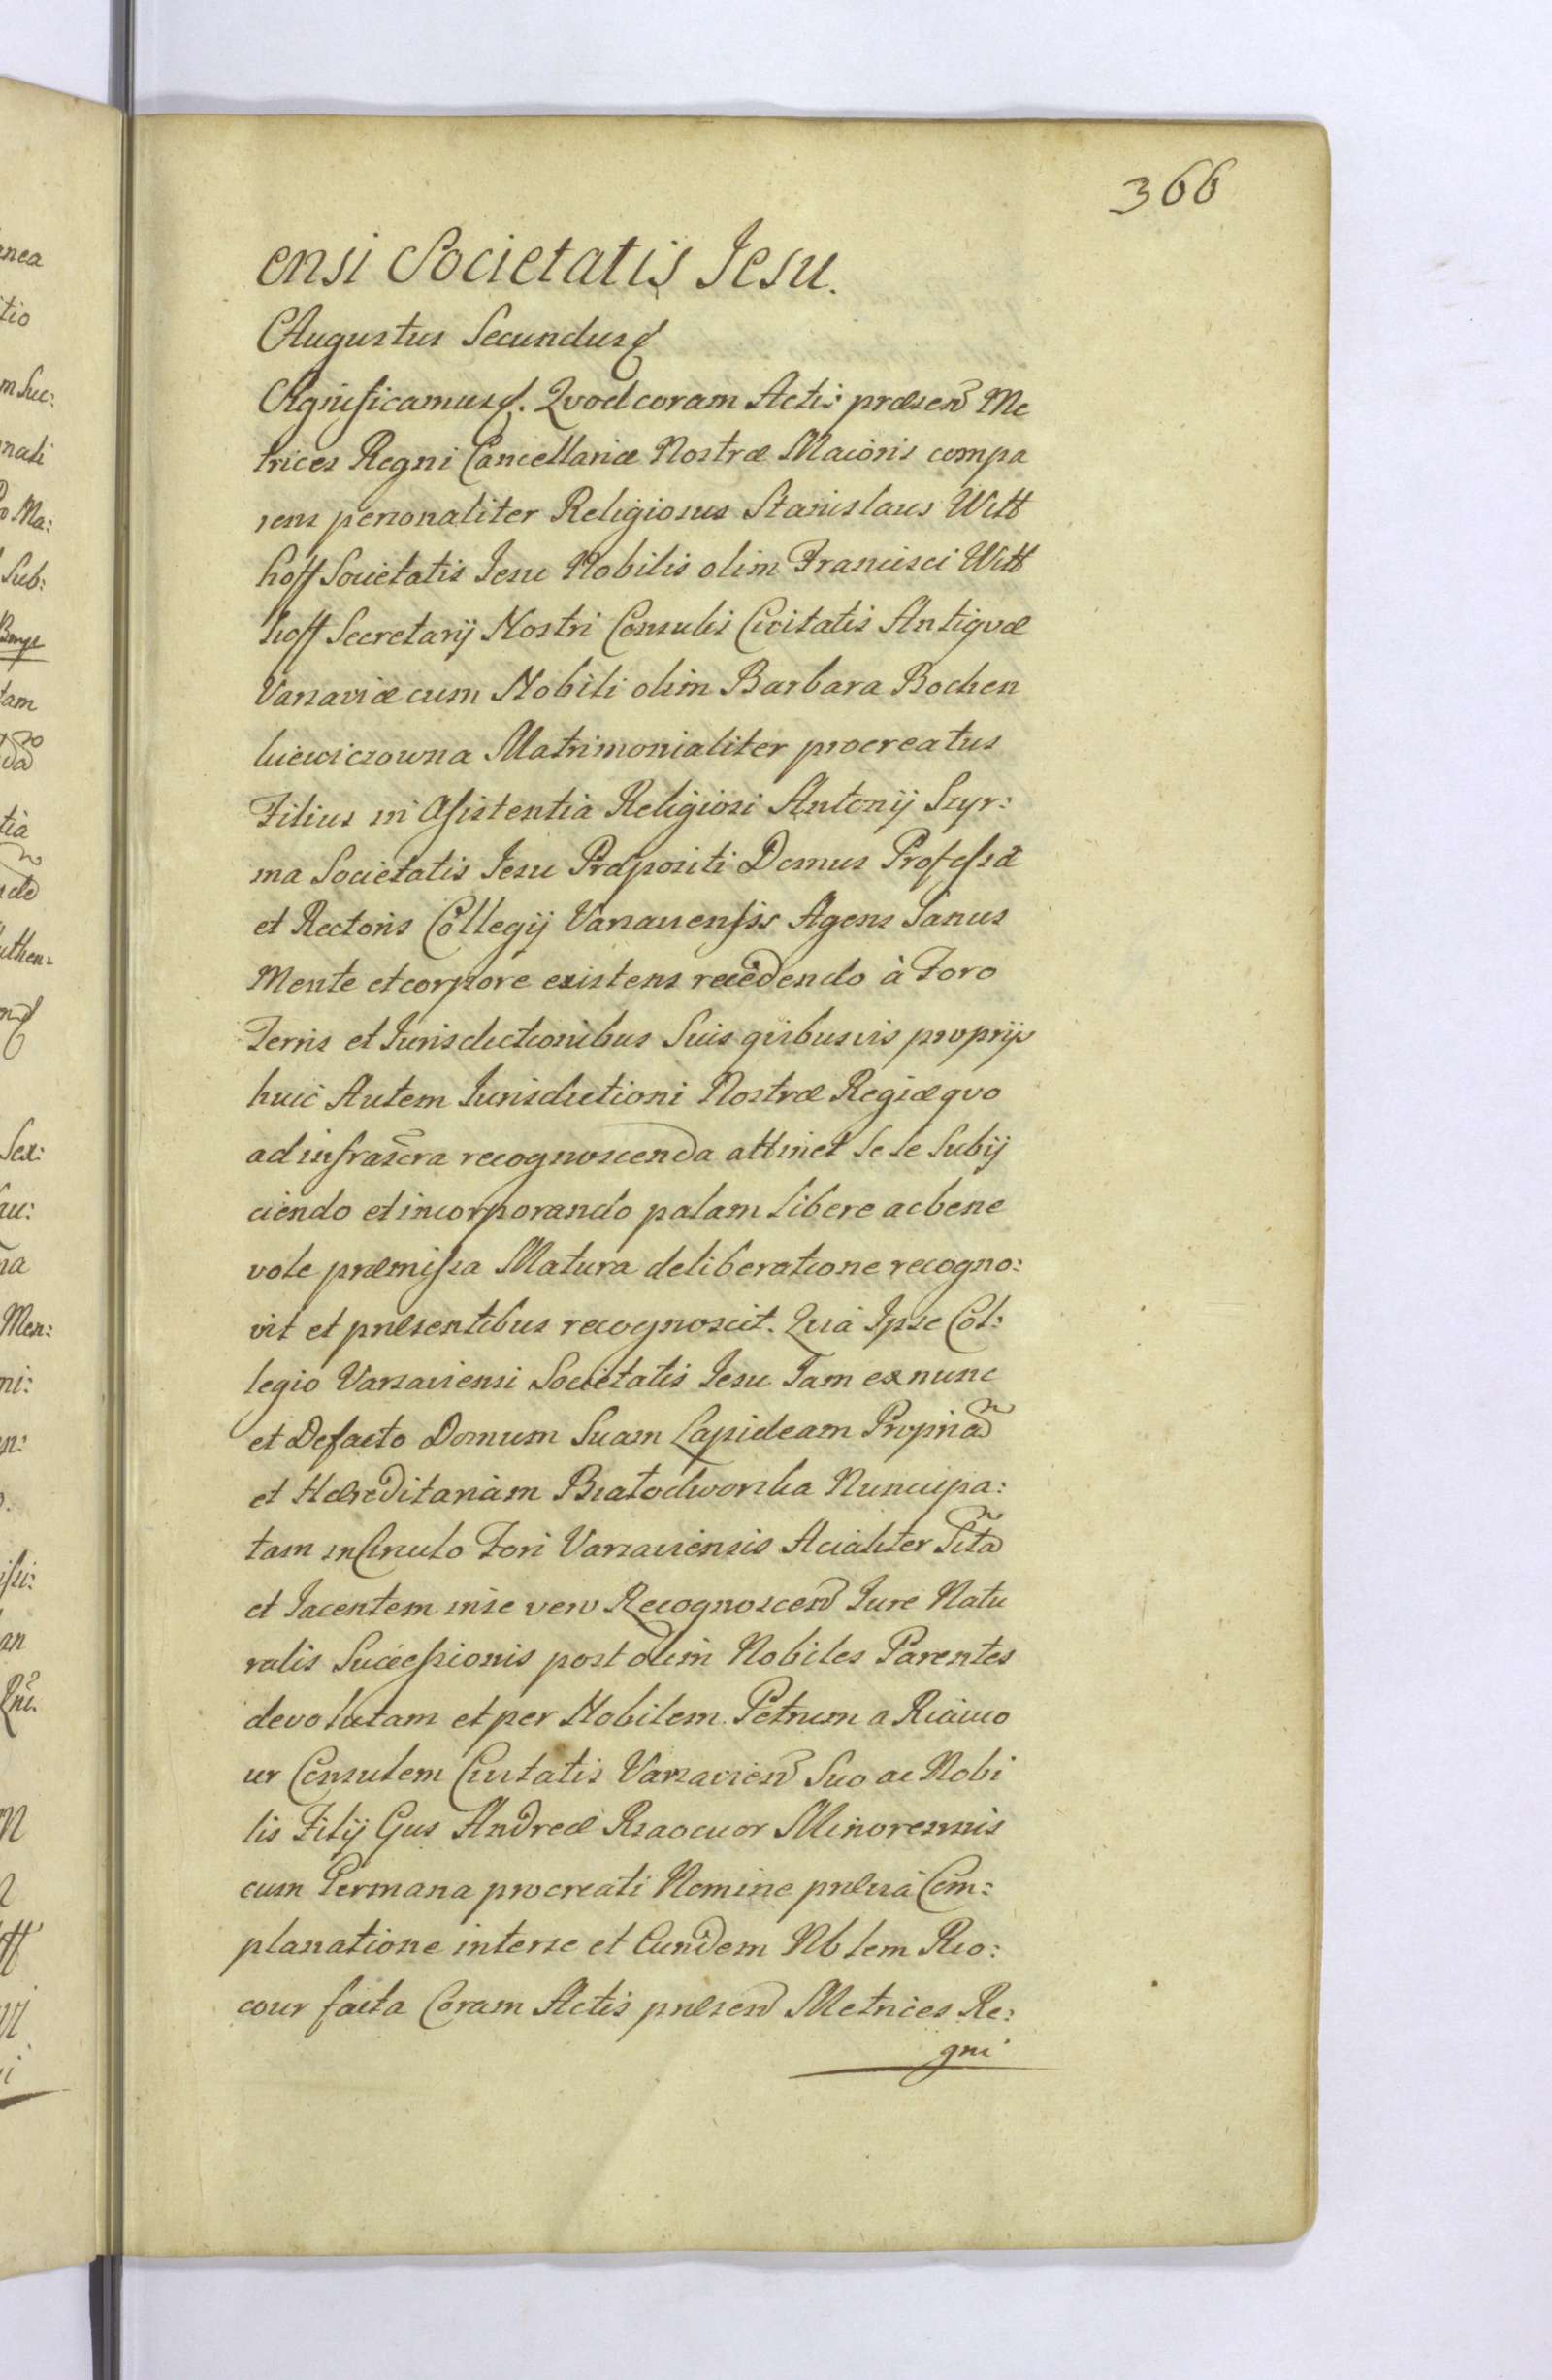 366
ensi Societatis Jesu.
Augustus Secundus
Significamus. Quod coram Actis præsen Me
trices Regni Cancellariæ Nostræ Maioris compa
rens personaliter Religiosus Stanislaus Witt
hoff Societatis Jesu Nobilis olim Francisci Witt
hoff Secretarij Nostri Consulis Civitatis Antiquæ
Varsaviæ cum Nobili olim Barbara Bochen
kiewiczowna Matrimonialiter procreatus
Filius in Assistentia Religiosi Antonij Szyr:
ma Societatis Jesu Præpositi Domus Professæ
et Rectoris Collegij Varsauensis Agens Sanus
Mente et corpore existens recedendo à Foro
Terris et Jurisdictionibus Suis quibusvis proprijs
huic Autem Jurisdictioni Nostræ Regiæ quo
ad infrascra recognoscenda attinet Se se Subij
ciendo et incorporando palam libere ac bene
vole præmissa Matura deliberatione recogno:
vit et præsentibus recognoscit. Quia Ipse Col:
legio Varsaviensi Societatis Jesu Jam ex nunc
et Defacto Domum Suam Lapideam Propriã
et Hæreditariam Nuncupa:
tam in Circulo Fori Varsaviensis Acialiter Sitã
et Jacentem in se vero Recognoscen Jure Natu
ralis Successionis post olim Nobiles Parentes
devolutam et per Nobilem Petrum a
ur Consulem Civitatis Varsavien Suo ac Nobi
lis Filij Eius Andreæ Minorennis
cum Germana procreati Nomine præuia Com:
planatione inter se et Eundem Nblem Rio:
cour facta Coram Actis præsen Metrices Re:
gni